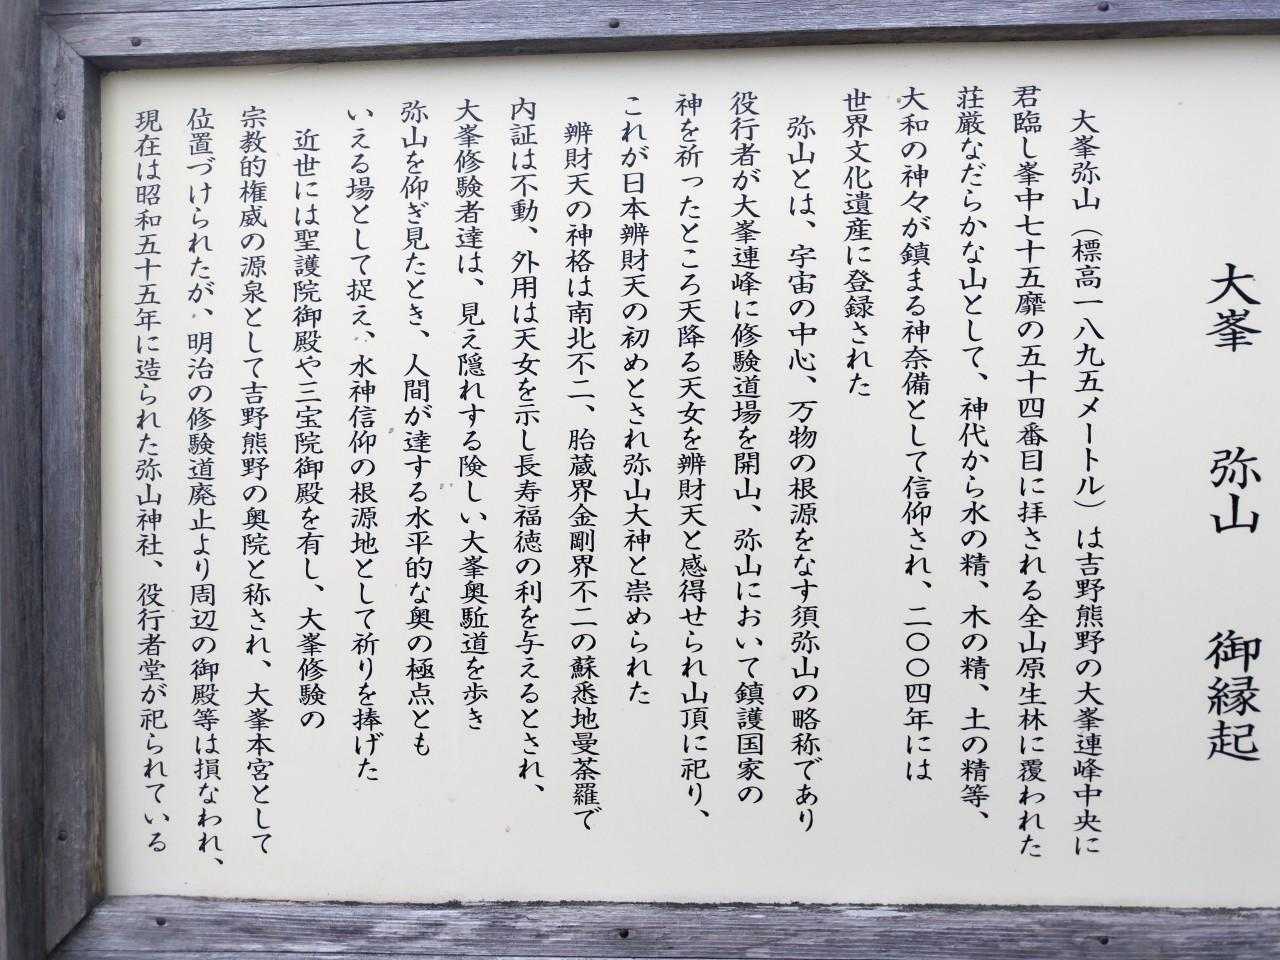 大峯 弥山 御縁起
大峯弥山（標高一八九五メートル）は吉野熊野の大峯連峰中央に
君臨し峯中七十五靡の五十四番目に拝される全山原生林に覆われた
荘厳なだらかな山として、神代から水の精、木の精、土の精等、
大和の神々が鎮まる神奈備として信仰され、二〇〇四年には
世界文化遺産に登録された
弥山とは、宇宙の中心、万物の根源をなす須弥山の略称であり
役行者が大峯連峰に修験道場を開山、弥山において鎮護国家の
神を祈ったところ天降る天女を辨財天と感得せられ山頂に祀り、
これが日本辨財天の初めとされ弥山大神と崇められた
辨財天の神格は南北不二、胎蔵界金剛界不二の蘇悉地曼荼羅で
内証は不動、外用は天女を示し長寿福徳の利を与えるとされ、
大峯修験者達は、見え隠れする険しい大峯奥駈道を歩き
弥山を仰ぎ見たとき、人間が達する水平的な奥の極点とも
いえる場として捉え、水神信仰の根源地として祈りを捧げた
近世には聖護院御殿や三宝院御殿を有し、大峯修験の
宗教的権威の源泉として吉野熊野の奥院と称され、大峯本宮として
位置づけられたが、明治の修験道廃止より周辺の御殿等は損なわれ、
現在は昭和五十五年に造られた弥山神社、役行者堂が祀られている